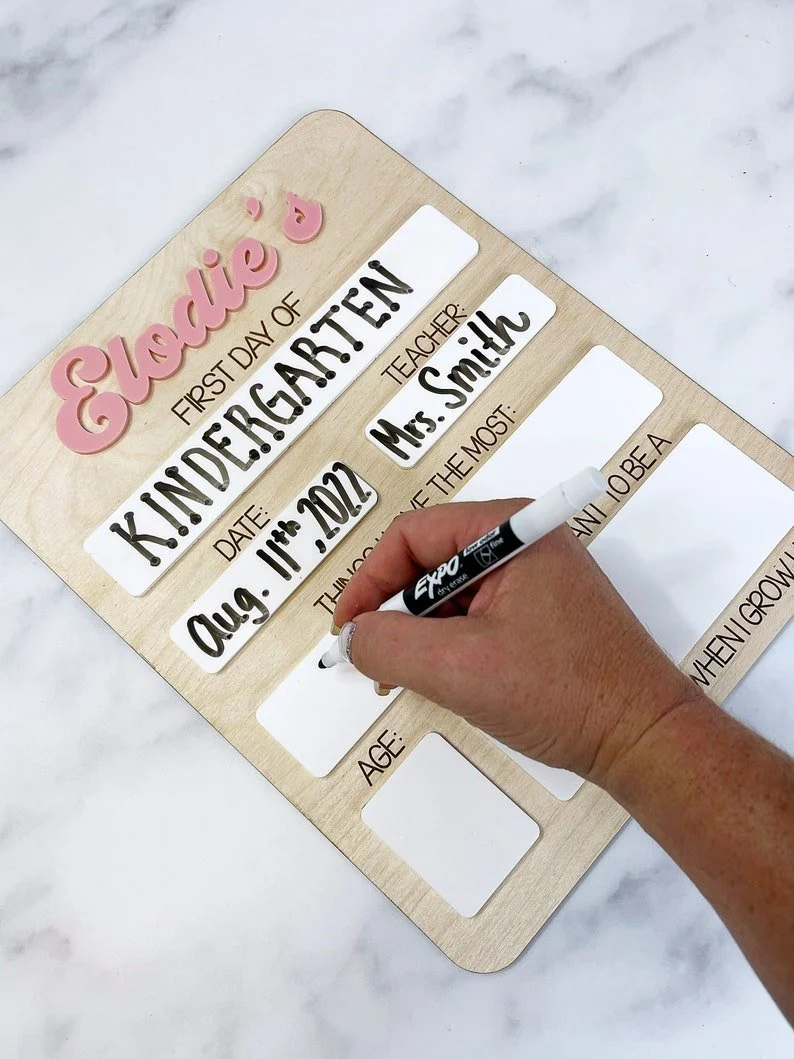 Elodie's
FIRST DAY OF
KINDERGARTEN
DATE:
TEACHER:
Aug. 11th, 2022
Mrs. Smith
THE MOST:
AGE:
TO BE A
WHEN I GROW
EXPO
low odor
dry erase
fine